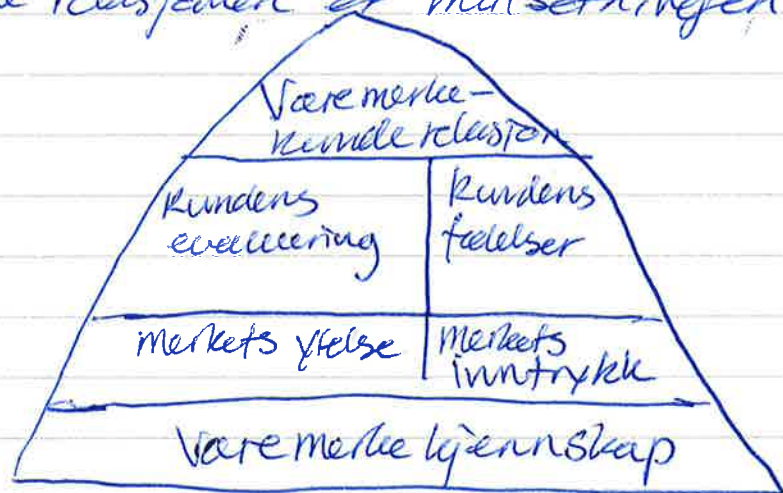 relasjonen er målsetningen
Varemerke-
kunde relasjon
Kundens
evaluering
Kundens
følelser
merkets ytelse
merkets
inntrykk
Varemerke kjennskap